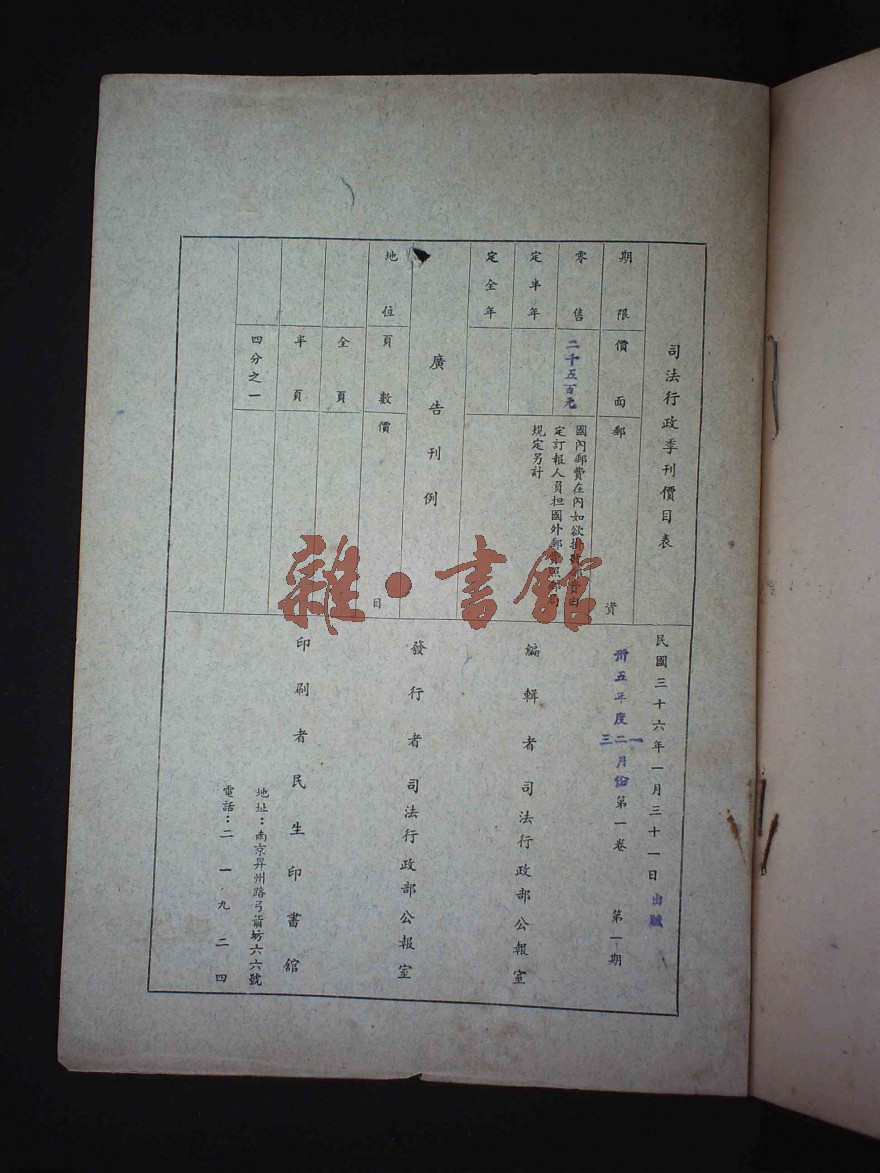 司法行政季刊價目表
期限 價面 郵資
零售 二千五百元
國內郵費在內如欲掛號郵費由
定訂報人員担國外郵費照郵局
規定另計
定半年
定全年
廣告刊例
地位 頁數 價目
全頁
半頁
四分之一
民國三十六年一月三十一日出版
卅五年度一二三月份第一卷 第一期
編輯者 司法行政部公報室
發行者 司法行政部公報室
印刷者 民生印書館
地址：南京昇州路弓箭坊六六號
電話：二一九二四
雜·書館